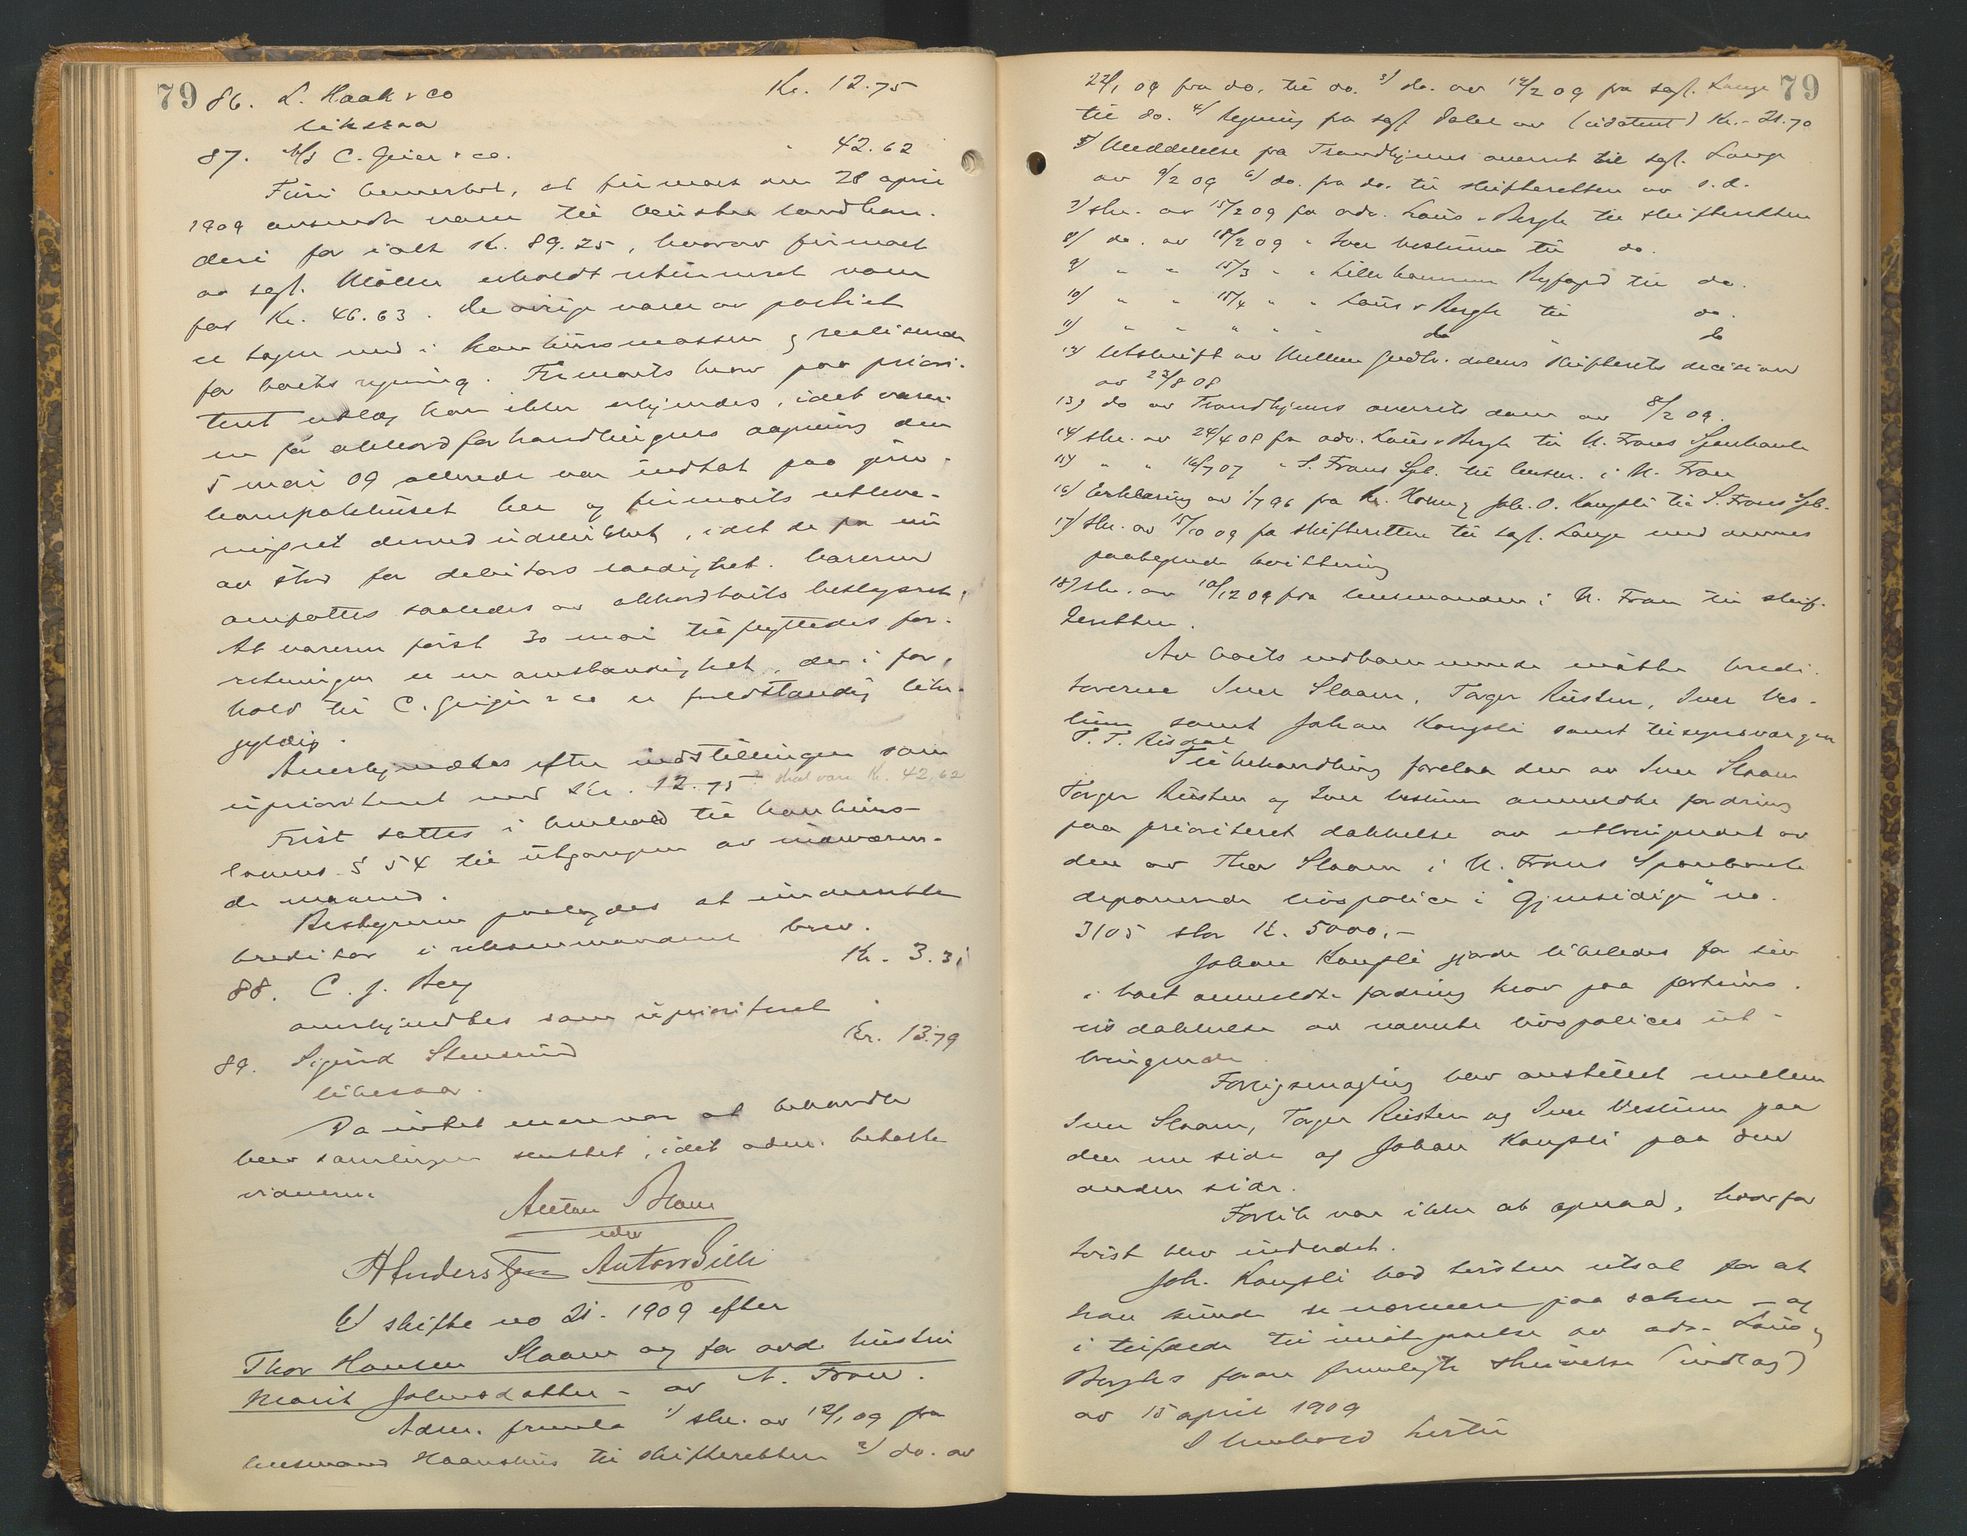 79
86. L. Haak & co Kr. 12.75
likesaa
87. A/S C. Geier & co. " 42.62
Fuldm. bemerket, at firmaet den 28 april
1909 avsendte varer til Veistens landhan-
deri for ialt Kr. 89.25, hvorav firmaet
av sagf. Møller erholdt utleveret varer
for Kr. 46.63. De øvrige varer av partiet
er tagne med i konkursmassen og realiserede
for boets regning. Firmaets krav paa priori-
tert utlæg kan ikke erkjendes, idet varer-
ne før akkordforhandlingens aapning den
5 mai 09 allerede var indtat paa
her og firmaets utleve-
ringsret derved utelukket, idet de fra nu
av stod for debitors raadighet. Varerne
ansattes saaledes av akkordboets bestyrer.
At varerne først 30 mai tilflyttedes for-
retningen er en omstændighet, der i for-
hold til C. Geijer & co er fuldstændig like-
gyldig.
Anerkjendtes efter indstillingen som
uprioriteret med Kr. 12.75 skal være Kr. 42,62
Frist sattes i henhold til konkurs-
lovens § 54 til utgangen av indeværen-
de maaned.
Bestyreren paalagdes at underrette
kreditor i rekommanderet brev.
88. C. J. Berg Kr. 3.31
anerkjendtes som uprioriteret
89. Sigurd Stensrud Kr. 13.79
likesaa.
Da intet mere var at behandle
blev samlingen sluttet, idet adm. betalte
vidnerne
Anton Blom
edv
A Anderssen Anton Lilli
I skifte no 21 - 1909 efter
Thor Hansen Slaaen og før avde hustru
Marit Johnsdatter - av N. Fron.
Adm. fremla 1/ skr. av 12/1 09 fra
lensmand Haanshus til skifteretten 2/ do. av
79
22/1 09 fra do. til do. 3/ do. av 14/2 09 fra sagf. Lange
til do. 4/ Regning fra sagf. Dahl av (udatert) Kr. 21.70
5/ Meddelelse fra Trondhjems overret til sagf. Lange
av 9/2 09 6/ do. fra do. til skifteretten av s.d.
7/ skr. av 15/2 09 fra adv. Laus & Bergh til skifteretten
8/ do. av 18/2 09 " Iver Veslum til do.
9/ " " 15/3 " " Lillehammer Rygfogd til do.
10/ " " 15/4 " " Laus & Bergh til do.
11/ " " " " " do do
12/ Utskrift av Mellem Gudbr. dalens skifterets decision
av 22/8 08
13/ do av Trondhjems overrets dom av 8/2 09.
14/ skr. av 24/4 08 fra adv. Laus & Bergh til N. Frons Sparebank
15/ " " 16/7 07 " S. Frons Spb. til lensm. i N. Fron
16/ Erklæring av 1/7 96 fra Kr. Horn og Joh. O. Kongsli til S. Frons Spb.
17/ Skr. av 15/10 09 fra skifteretten til sagf. Lange med dennes
paategnede kvittering
18/ skr. av 10/12 09 fra lensmanden i N. Fron til skif-
teretten.
Av boets vedkommende møtte kredi-
torerne Iver Slaaen, Torger Rusten, Iver Ves-
lum samt Johan Kongsli samt tilsynsvergen
T. T. Risdal
Til behandling forelaa den av Iver Slaaen
Torger Rusten og Iver Veslum anmeldte fordring
paa prioriteret dækkelse av utbringendet av
den av Thor Slaaen i N. Frons Sparebank
deponerede livspolice i "Gjensidige" no.
3105 stor K. 5000.-
Johan Kongsli gjorde likeledes for sin
i boet anmeldte fordring krav paa fortrins-
vis dækkelse av nævnte livspolices ut-
bringende.
Forligsmægling blev anstillet mellem
Iver Slaaen, Torger Rusten og Iver Veslum paa
den ene side og Johan Kongsli paa den
anden side.
Forlik var ikke at opnaa, hvorfor
tvist blev indledet.
Joh. Kongsli bad tvisten utsat for at
han kunde se nærmere paa saken - og
i tilfælde til imøtegaaelse av adv. Laus &
Berghs foran fremlagte skrivelse (indlæg)
av 15 april 1909
I henhold hertil